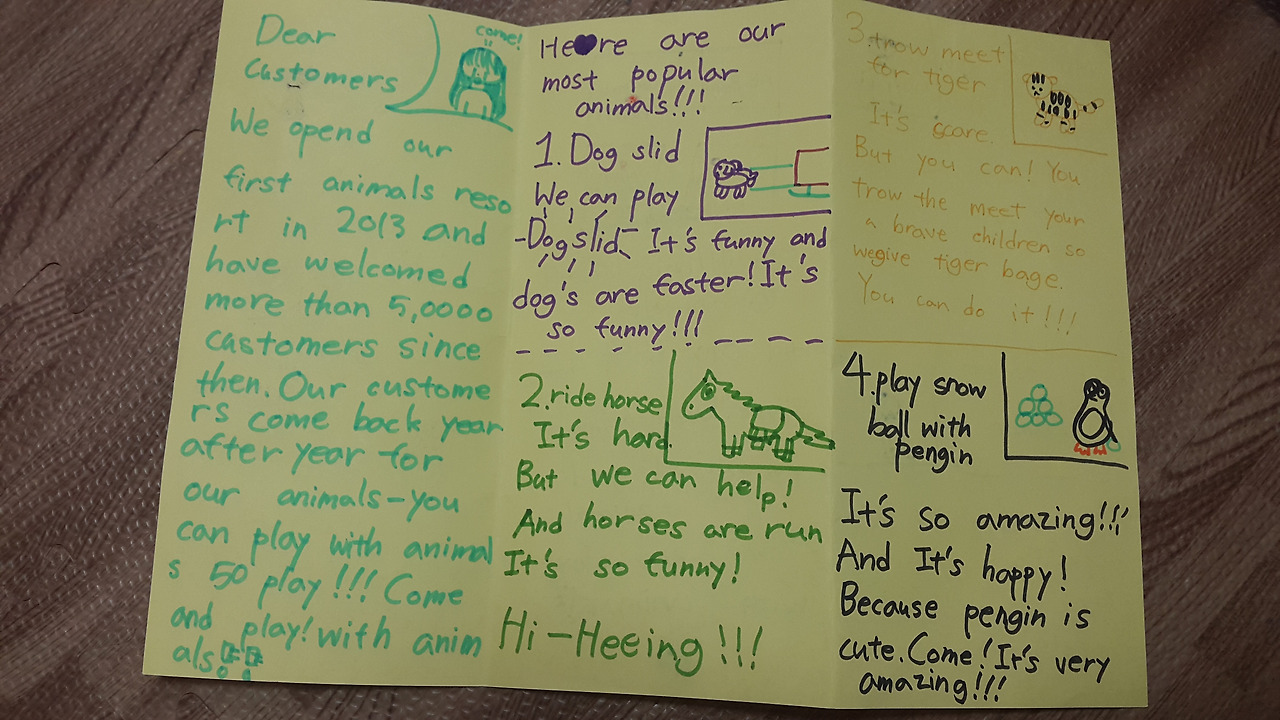 Dear
Customers
come!
We opend our
first animals reso
rt in 2013 and
have welcomed
more than 5,0000
castomers since
then. Our custome
rs come back year
after year for
our animals-you
can play with animal
s 50 play!!! Come
and play! with anim
als!!
He♥re are our
most popular
animals!!!
1. Dog slid
We can play
-Dog slid- It's funny and
dog's are faster! It's
so funny!!!
2. ride horse
It's hard.
But we can help!
And horses are run
It's so funny!
Hi-Heeing!!!
3. trow meet
for tiger
It's scare.
But you can! You
trow the meet your
a brave children so
wegive tiger bage.
You can do it!!!
4. play snow
ball with
pengin
It's so amazing!!!
And It's happy!
Because pengin is
cute. Come! It's very
amazing!!!